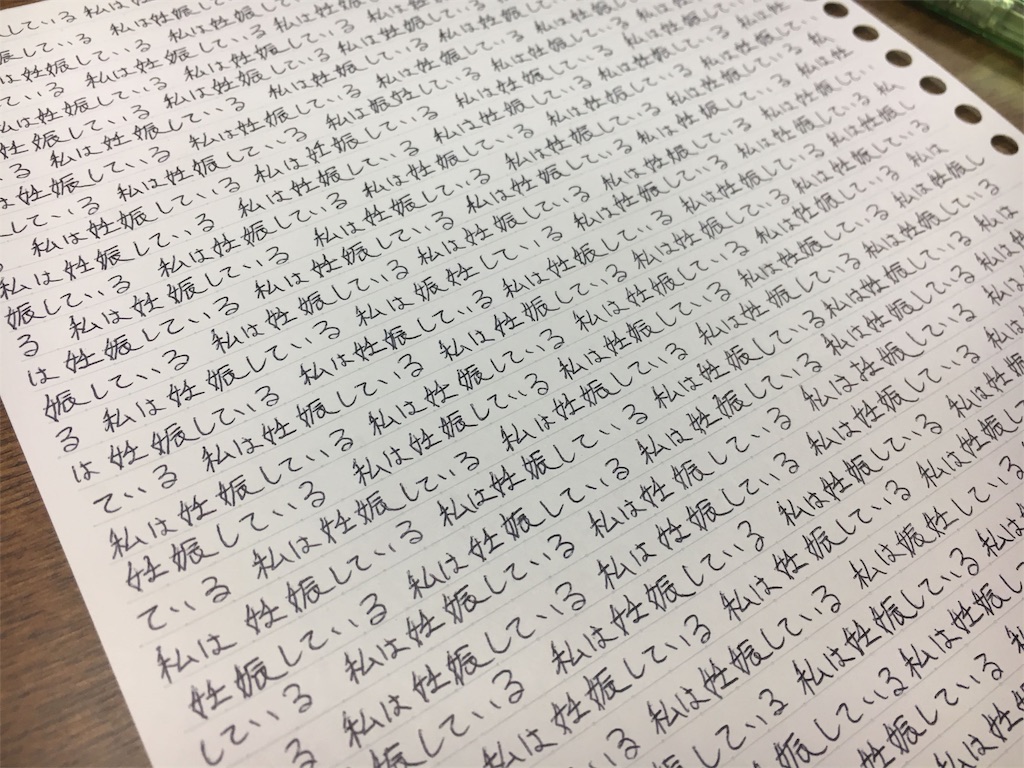 している 私は
娠している 私は妊娠している 私は
は妊娠している 私は妊娠している 私は妊娠している
ている 私は妊娠している 私は妊娠している 私は妊娠している
私は妊娠している 私は妊娠している 私は妊娠している 私は妊娠している
妊娠している 私は妊娠している 私は妊娠している 私は妊娠している
る 私は妊娠している 私は妊娠している 私は妊娠している 私は妊娠している
は妊娠している 私は妊娠している 私は妊娠している 私は妊娠している
している 私は妊娠している 私は妊娠している 私は娠妊している 私は妊娠している
る 私は妊娠している 私は妊娠している 私は妊娠している 私は妊娠している
私は妊娠している 私は妊娠している 私は妊娠している 私は妊娠している
娠している 私は妊娠している 私は妊娠している 私は妊娠している 私は妊娠している
る 私は妊娠している 私は妊娠している 私は妊娠している 私は妊娠している
は妊娠している 私は妊娠している 私は妊娠している 私は妊娠している
娠している 私は妊娠している 私は妊娠している 私は妊娠している 私は妊娠してい
る 私は妊娠している 私は妊娠している 私は娠妊している 私は妊娠している 私は
は妊娠している 私は妊娠している 私は妊娠している 私は妊娠している 私は妊娠し
ている 私は妊娠している 私は妊娠している 私は妊娠している 私は妊娠している
私は妊娠している 私は妊娠している 私は妊娠している 私は妊娠している 私は
妊娠している 私は妊娠している 私は妊娠している 私は妊娠している 私は
ている 私は妊娠している 私は妊娠している 私は妊娠している 私は
私は妊娠している 私は妊娠している 私は妊娠している 私は妊娠している
妊娠している 私は妊娠している 私は妊娠している 私は妊娠している
している 私は妊娠している 私は妊娠している 私は妊娠している 私は妊娠し
る 私は妊娠している 私は妊娠している 私は娠妊している
娠している 私は妊娠している 私は妊娠している 私は
私は妊娠している 私は妊娠し
妊娠している 私
私は妊